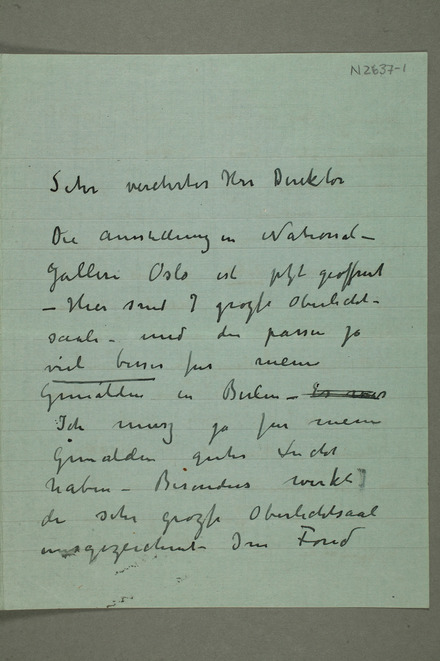 N2637-1
Sehr verehrter Herr Direktor
Die Ausstellung in National-
Galleri Oslo ist jetzt geöffnet
- Hier sind 7 große Oberlicht-
saale - und die passen ja
viel besser für meine
Gemälden in Berlin - Es war
Ich muss ja für meine
Gemälden gutes Licht
haben - Besonders wirkt
der sehr große Oberlichtsaal
ausgezeichnet - Im Fond